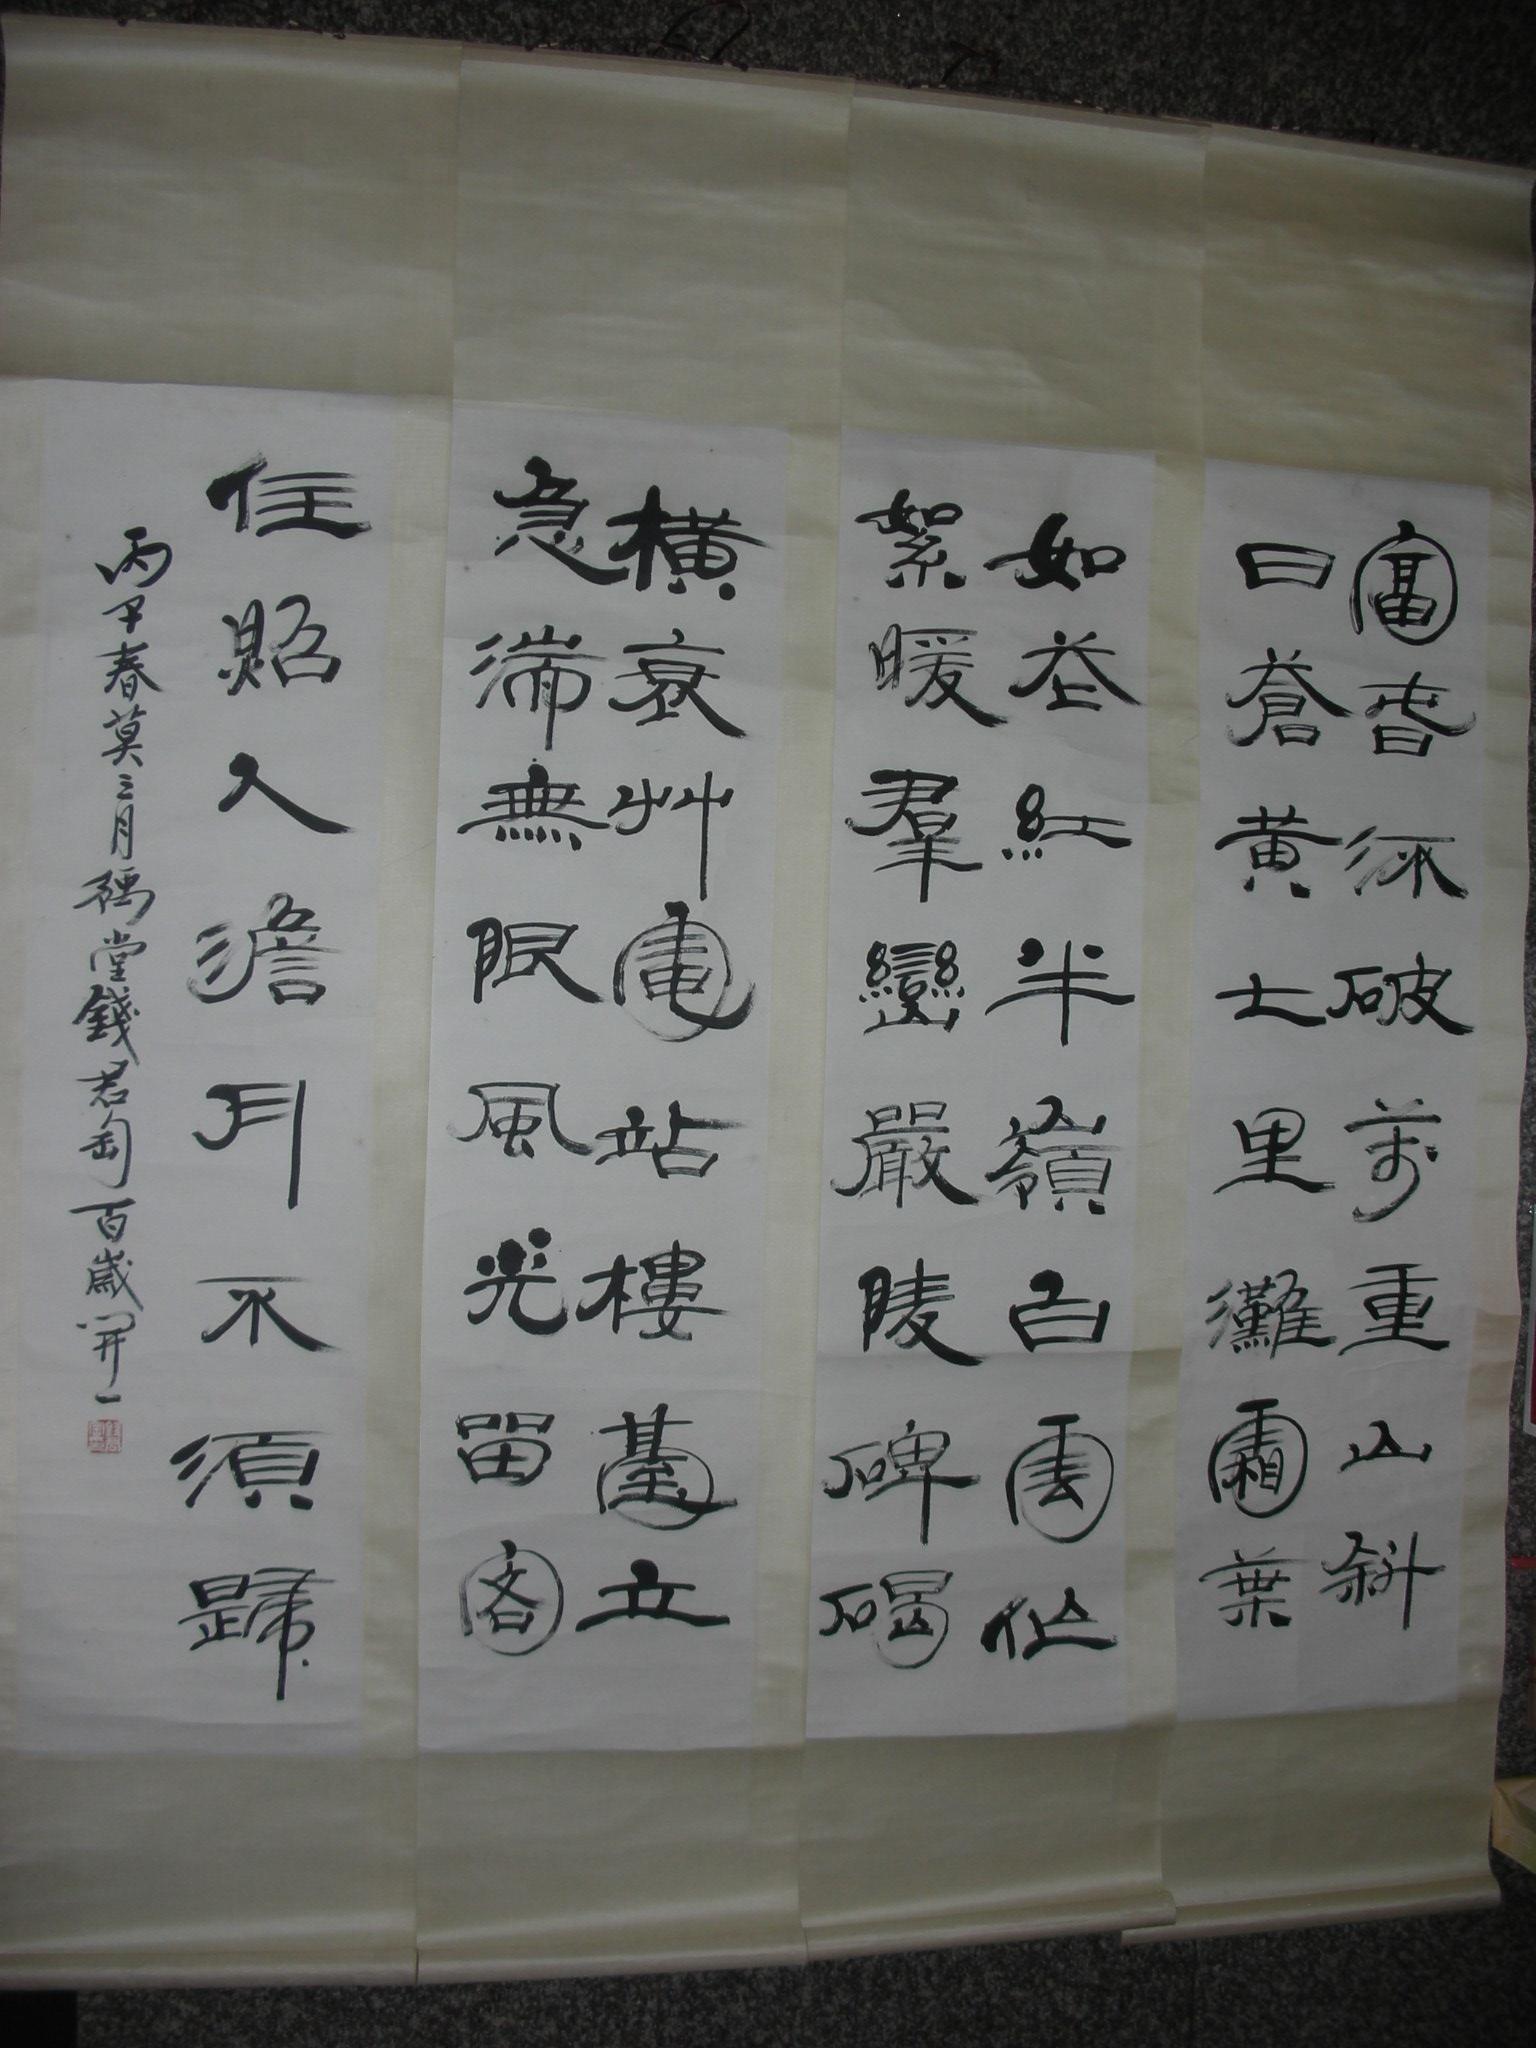 富春破萬重山斜
日蒼黃七里灘霜葉
如花紅半嶺白雲似
絮暖羣巒嚴陵碑碣
橫衰艸電站樓臺立
急湍無限風光留客
住照人澹月不須歸
丙子春莫三月豫堂錢君匋百歲開一